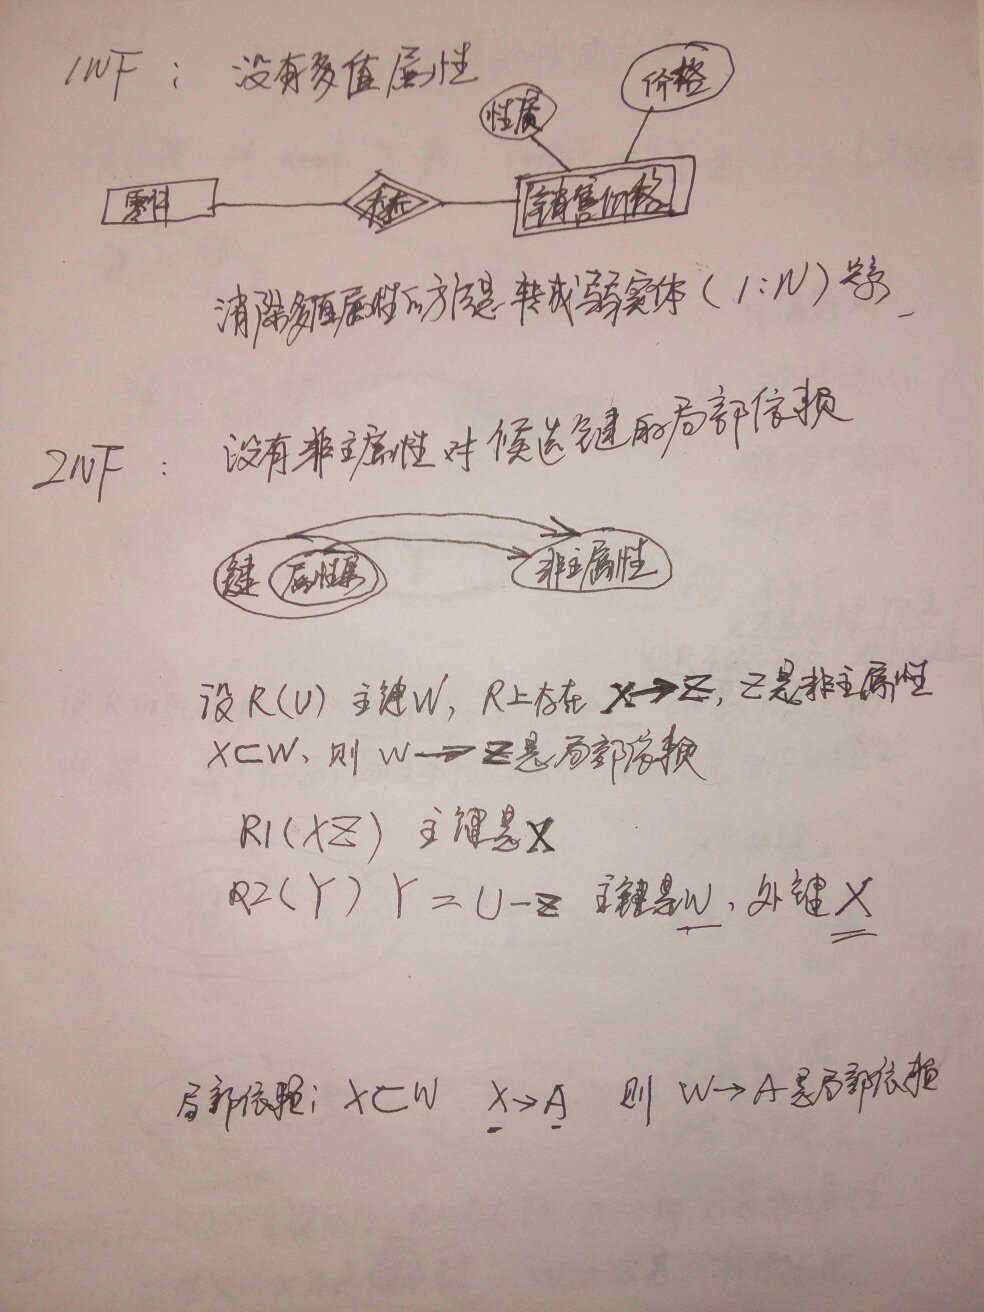 1NF： 没有多值属性
性质
价格
零件
销售价格
消除多值属性的方法是转成弱实体（1:N）关系
2NF： 没有非主属性对候选键的局部依赖
键 属性集 非主属性
设R(U) 主键W，R上存在 X→Z，Z是非主属性
X⊂W、则 W→Z是局部依赖
R1(XZ) 主键是X
R2(Y) Y=U-Z 主键是W、外键X
局部依赖：X⊂W X→A 则 W→A是局部依赖